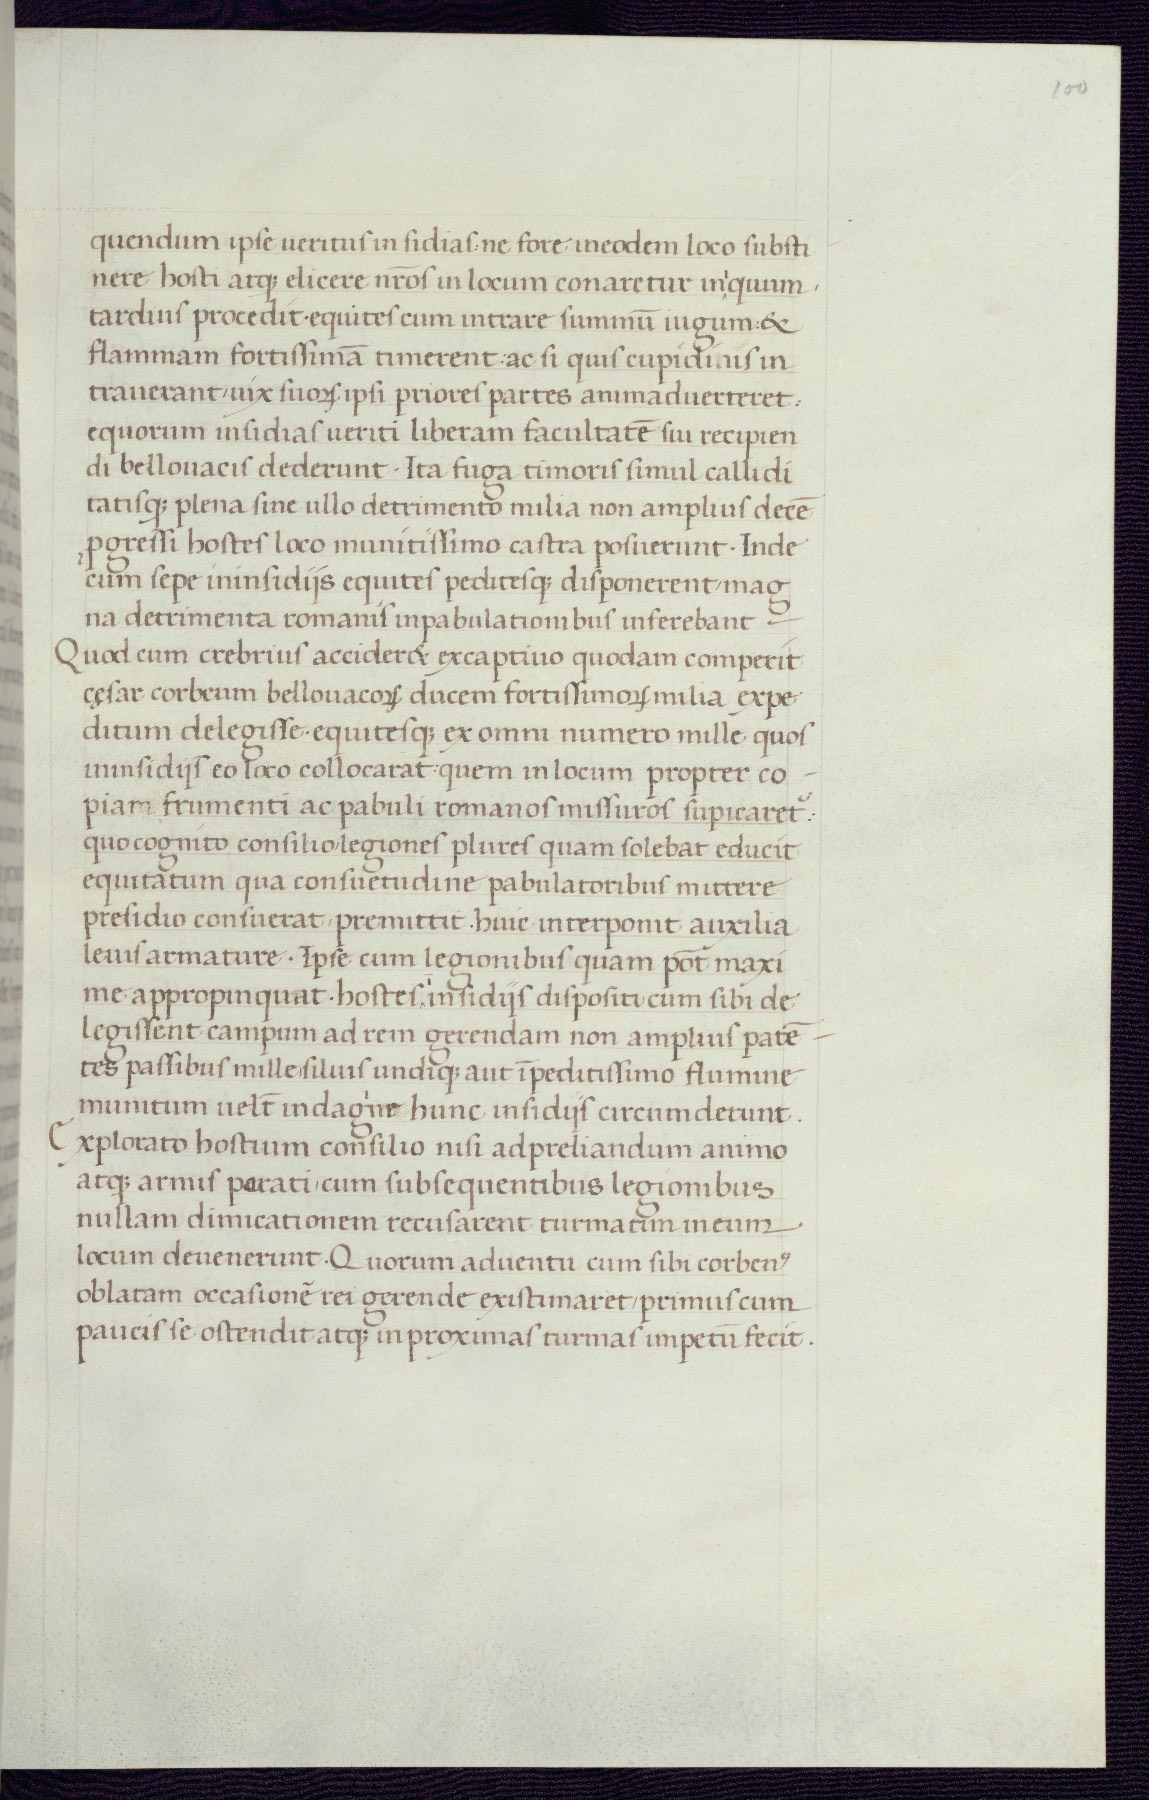 100
quendum ipse ueritus in sidias: ne fore ineodem loco substi
nere hosti atq; elicere nr̄os in locum conaretur iniquum,
tardius procedit. equites cum intrare summū iugum: &
flammam fortissimā timerent: ac si quis cupidius in
trauerant, uix suoꝝ ipsi priores partes animaduerteret:
equorum insidias ueriti liberam facultatē sui recipien
di bellouacis dederunt. Ita fuga timoris simul callidi
tatisq; plena sine ullo detrimento milia non amplius decē
ꝓgressi hostes loco munitissimo castra posuerunt. Inde
cum sepe ininsidijs equites peditesq; disponerent, mag
na detrimenta romanis inpabulationibus inferebant
Quod cum crebrius accider& excaptiuo quodam comperit
cęsar corbeum bellouacoꝝ ducem fortissimoꝝ milia expe
ditum delegisse. equitesq; ex omni numero mille quos
ininsidijs eo loco collocarat: quem in locum propter co
piam frumenti ac pabuli romanos missuros supicaret᷑:
quo cognito consilio, legiones plures quam solebat educit
equitatum qua consuetudine pabulatoribus mittere
presidio consuerat, premittit. huic interponit auxilia
leuis armature. Ipse cum legionibus quam pōt maxi
me appropinquat. hostes, insidijs dispositi cum sibi de
legissent campum ad rem gerendam non amplius patē
tes passibus mille, siluis undiq; aut īpeditissimo flumine
munitum uelt̄ indagine hunc insidijs circumderunt.
Explorato hostium consilio nisi adpreliandum animo
atq; armis parati, cum subsequentibus legionibus
nullam dimicationem recusarent turmatim in eum
locum deuenerunt. Quorum aduentu cum sibi corbenꝰ
oblatam occasionē rei gerende existimaret, primus cum
paucis se ostendit atq; in proximas turmas impetū fecit.